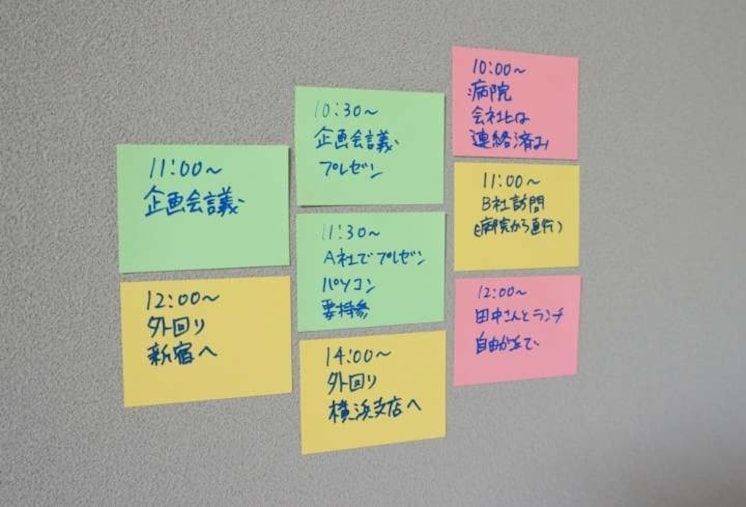 11:00～
企画会議
12:00～
外回り
新宿へ
10:30～
企画会議
プレゼン
11:30～
A社でプレゼン
パソコン
要持参
14:00～
外回り
横浜支店へ
10:00～
病院
会社には
連絡済み
11:00～
B社訪問
(病院から直行)
12:00～
田中さんとランチ
自由が丘で